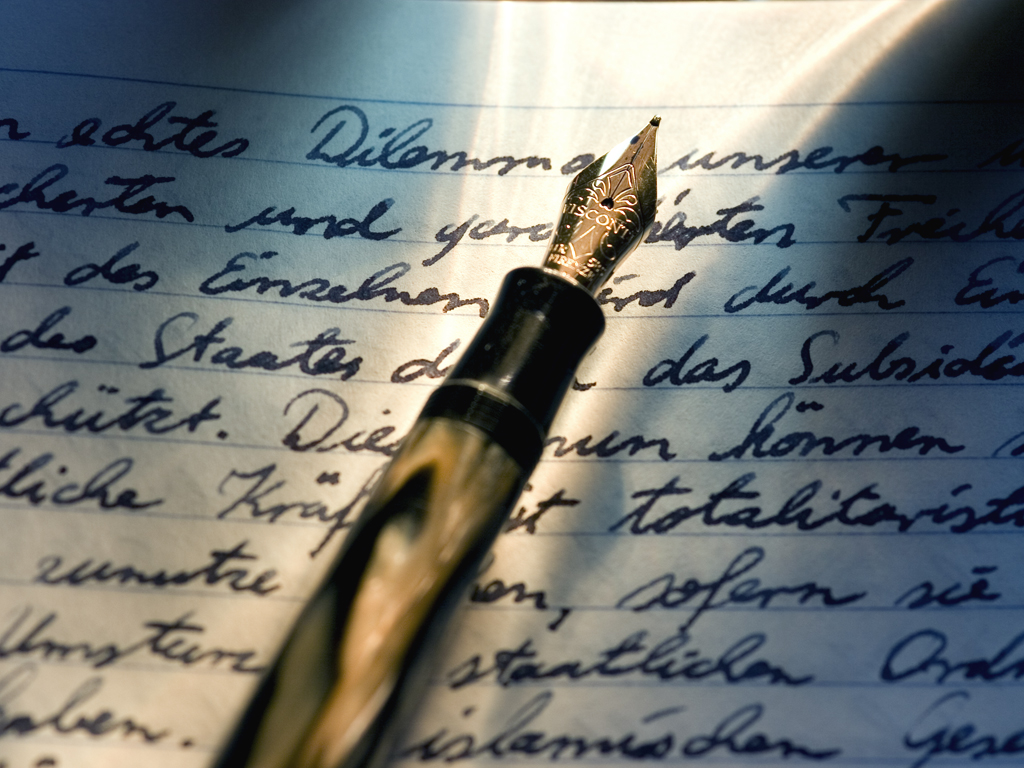 echtes Dilemma unserer
und garantierten Freihe
des Einzelnen wird durch Ein
des Staates d das Subsidä
chützt. Dies nun können
tliche Kräf it totalitaristi
zunutze en, sofern sie
Umsturz staatlichen Ordn
haben. islamischen Gese
VISCONTI
FIRENZE